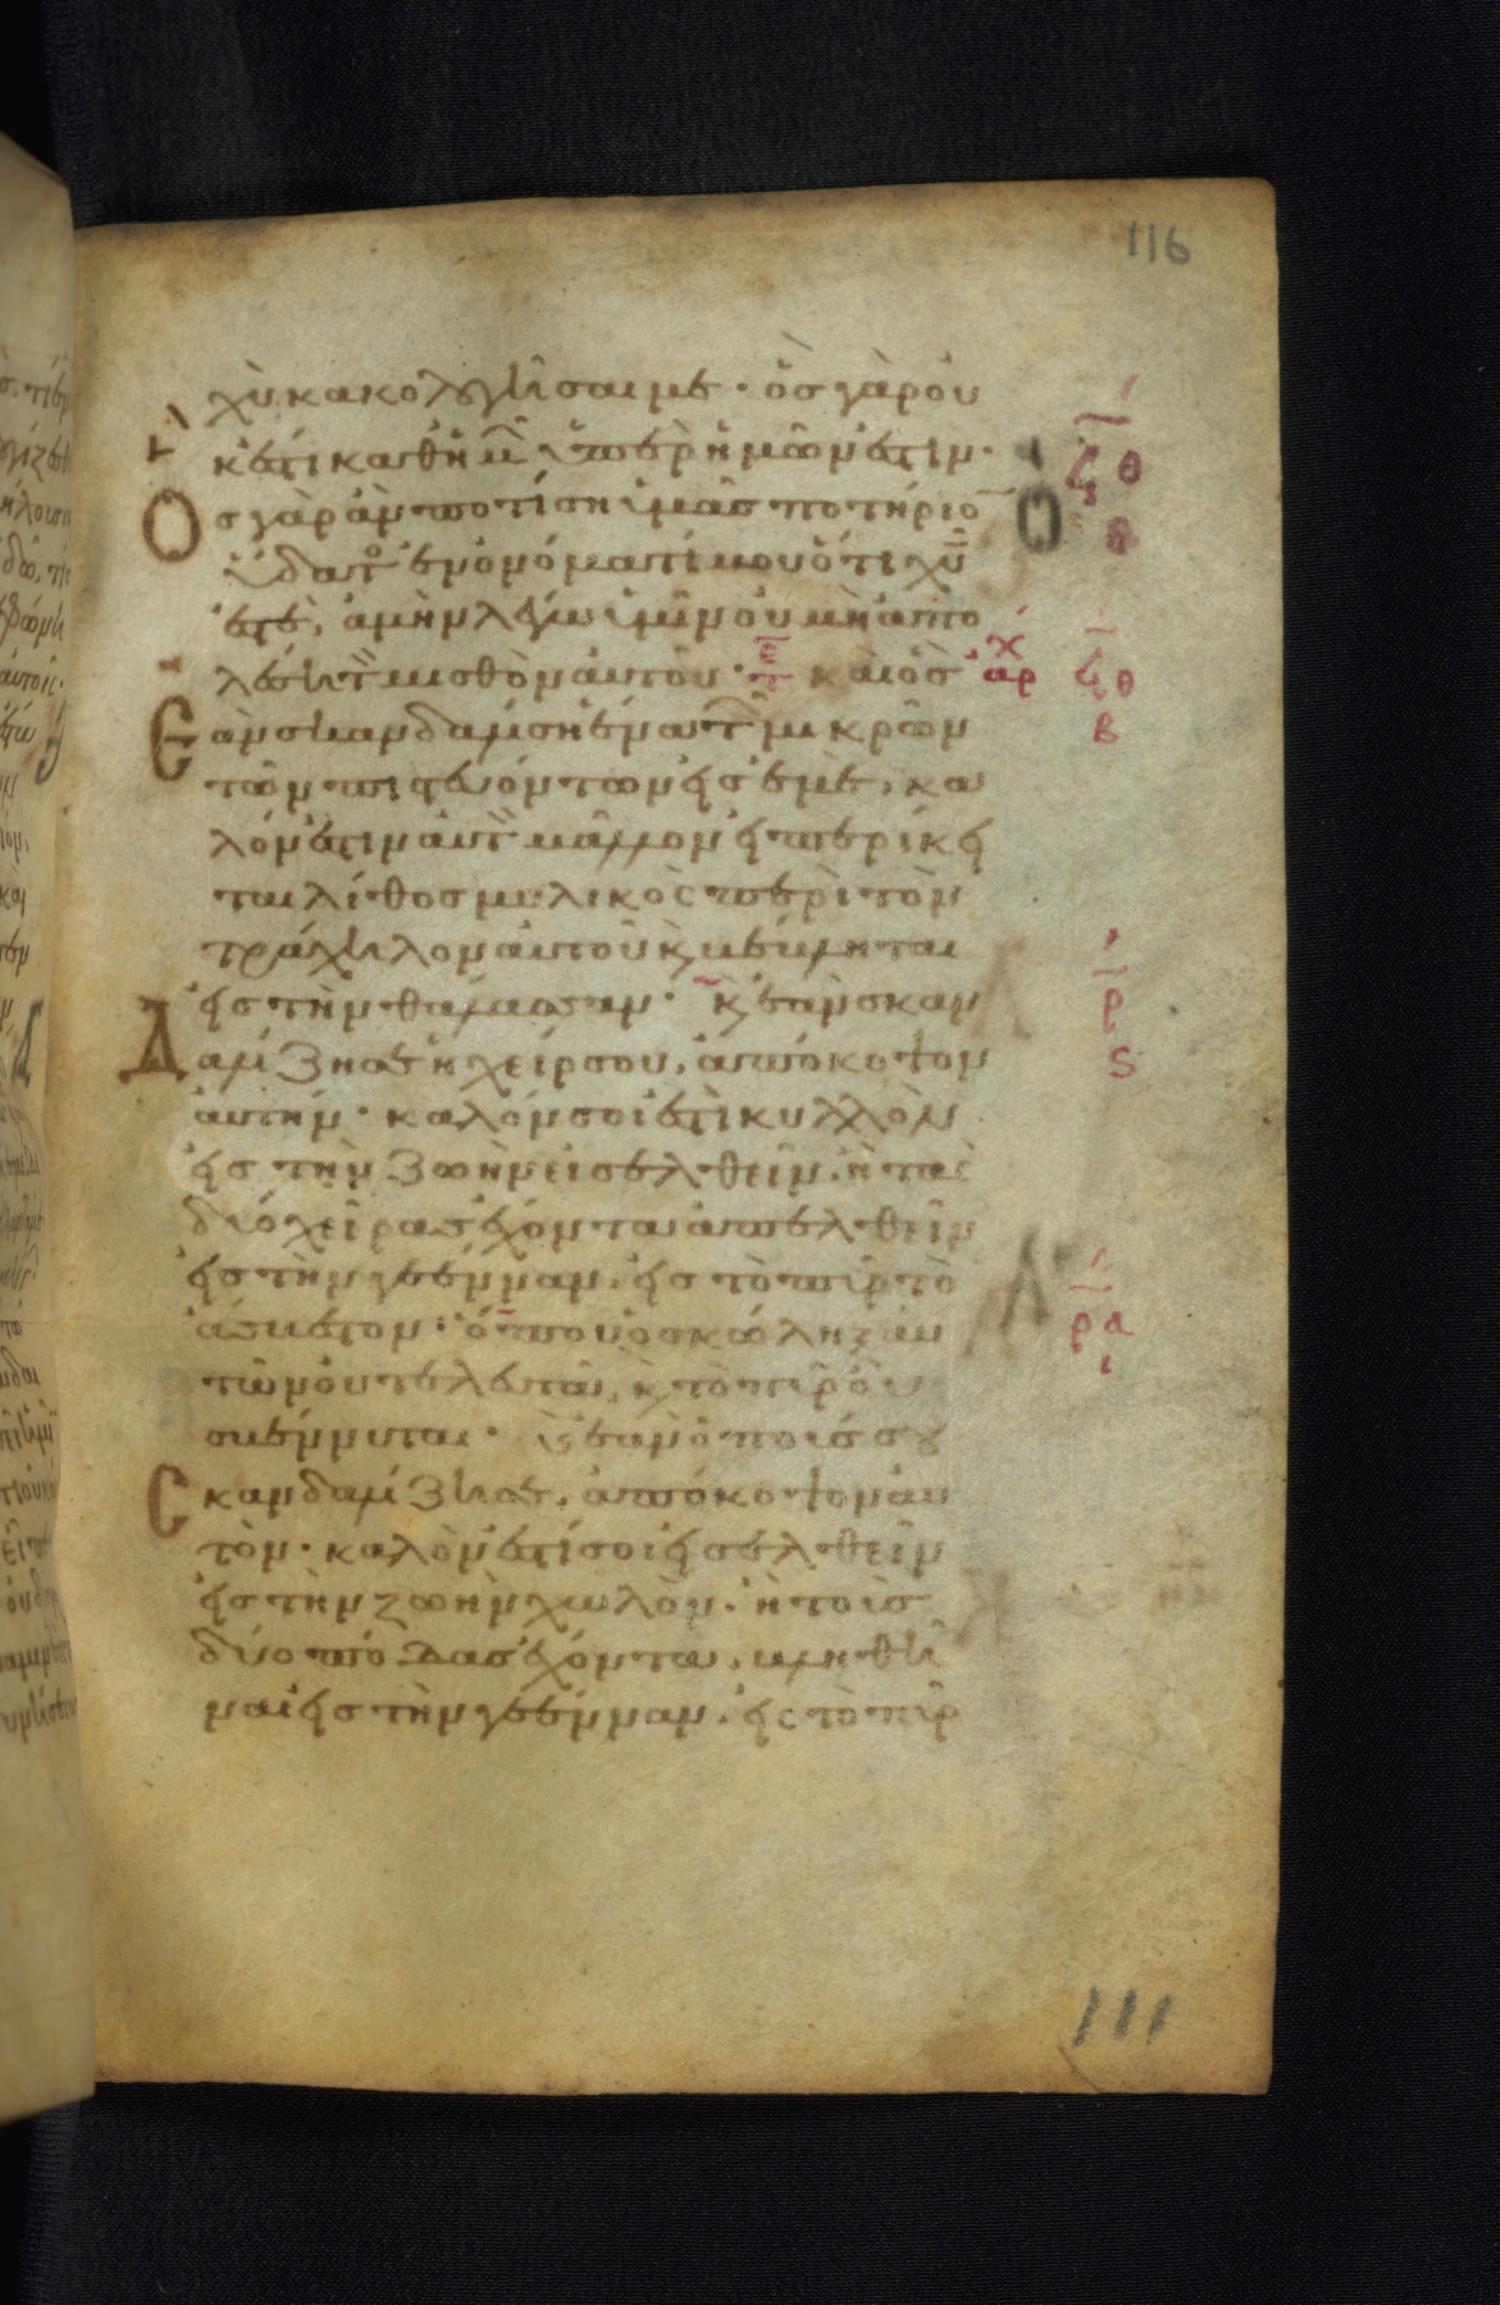 116
χὺ κακολογῆσαι με · ὃς γὰρ οὐ
κ ἔστι καθ ἡμ ὑπὲρ ἡμῶν ἐστιν ·
Ο ς γὰρ ἂν ποτίση ὑμᾶς ποτήριο
ὕδατο ἐν ὀνόματί μου ὅτι χυ
ἐστὲ, ἀμὴν λέγω ὑμῖν οὐ μὴ ἀπο
λέση τ μισθὸν αὐτοῦ · καὶ ὃς
αρ
Ε ὰν σκανδαλίση ἕνα τ μικρῶν
τῶν πιστευόντων εἰς ἐμὲ, κα
λόν ἐστιν αὐτ μᾶλλον εἰ περίκει
ται λίθος μυλικὸς περὶ τὸν
τράχηλον αὐτοῦ κ βέβληται
εἰς τὴν θάλασσαν · κ ἐὰν σκαν
Δ αλίζη σε ἡ χείρ σου, ἀπόκοψον
αὐτήν · καλόν σοι ἐστὶ κυλλὸν
εἰς τὴν ζωὴν εἰσελθεῖν, ἢ τὰς
δύο χεῖρας ἔχοντα ἀπελθεῖν
εἰς τὴν γέενναν, εἰς τὸ πῦρ τὸ
ἄσβεστον · ὅπου ὁ σκώληξ αὐ
τῶν οὐ τελευτᾶ, κ τὸ πῦρ οὐ
σβέννυται · κ ἐὰν ὁ ποῦς σου
Σ κανδαλίζη σε, ἀπόκοψον αὐ
τὸν · καλὸν ἐστί σοι εἰσελθεῖν
εἰς τὴν ζωὴν χωλὸν · ἢ τοὺς
δύο πόδας ἔχοντα, βληθῆ
ναι εἰς τὴν γέενναν, εἰς τὸ πῦρ
111